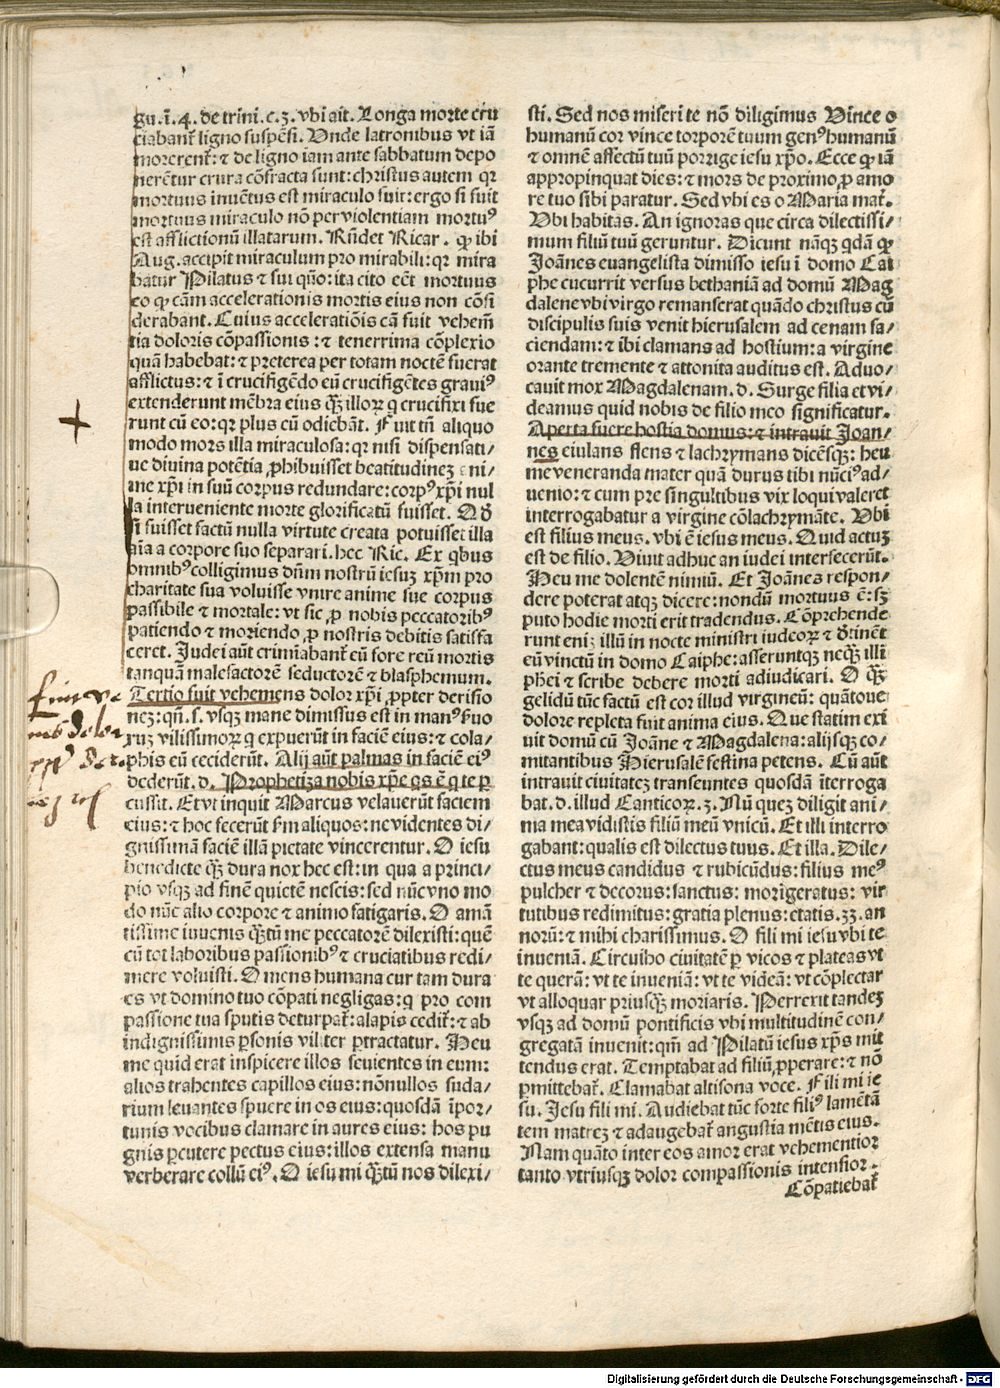 gu. ī. 4. de trini. c. 3. vbi ait. Longa morte cru
ciabant᷑ ligno suspēsi. Unde latronibus vt iā
morerent᷑: ⁊ de ligno iam ante sabbatum depo
nerētur crura cōfracta sunt: christus autem qꝛ
mortuus inuētus est miraculo fuit: ergo si fuit
mortuus miraculo nō per violentiam mortuꝰ
est afflictionū illatarum. Rñdet Ricar. ꝙ ibi
Aug. accipit miraculum pro mirabili: qꝛ mira
batur Pilatus ⁊ sui qño: ita cito eēt mortuus
eo ꝙ cām accelerationis mortis eius non cōsi
derabant. Cuius acceleratiōis cā fuit vehemē
tia doloris cōpassionis: ⁊ tenerrima cōplexio
quā habebat: ⁊ preterea per totam noctē fuerat
afflictus: ⁊ ī crucifigēdo eū crucifigētes grauiꝰ
extenderunt mēbra eius ꝙ̃ illoꝝ q crucifixi fue
runt cū eo: qꝛ plus cū odiebāt. Fuit tñ aliquo
modo mors illa miraculosa: qꝛ nisi dispensati/
ue diuina potētia ꝓhibuisset beatitudineꝫ ani/
me xp̄i in suū corpus redundare: corpꝰ xp̄i nul
la interueniente morte glorificatū fuisset. Qđ
si fuisset factū nulla virtute creata potuisset illa
aīa a corpore suo separari. hec Ric. Ex qbus
omnibꝰ colligimus dñm nostrū iesuꝫ xp̄m pro
charitate sua voluisse vnire anime sue corpus
passibile ⁊ mortale: vt sic ꝓ nobis peccatoribꝰ
patiendo ⁊ moriendo ꝓ nostris debitis satisfa
ceret. Judei aūt crimīabant᷑ eū fore reū mortis
tanquā malefactorē seductorē ⁊ blasphemum.
Tertio fuit vehemens dolor xp̄i ꝓpter derisio
neꝫ: qñ. s. vsqꝫ mane dimissus est in manꝰ suo
ruꝫ vilissimoꝝ q expuerūt in faciē eius: ⁊ cola/
phis eū ceciderūt. Alij aūt palmas in faciē eiꝰ
dederūt. d. Prophetiza nobis xp̄e qs ē q te ꝑ
cussit. Et vt inquit Marcus velauerūt faciem
eius: ⁊ hoc fecerūt ẜm aliquos: ne videntes di/
gnissimā faciē illā pietate vincerentur. O iesu
benedicte ꝙ̃ dura nox hec est: in qua a princi/
pio vsqꝫ ad finē quietē nescis: sed nūc vno mo
do nūc alio corpore ⁊ animo fatigaris. O amā
tissime iuuenis ꝙ̃tū me peccatorē dilexisti: quē
cū tot laboribus passionibꝰ ⁊ cruciatibus redi/
mere voluisti. O mens humana cur tam dura
es vt domino tuo cōpati negligas: q pro com
passione tua sputis deturpat᷑: alapis cedit᷑: ⁊ ab
indignissimis ꝑsonis viliter ꝑtractatur. Heu
me quid erat inspicere illos seuientes in eum:
alios trahentes capillos eius: nōnullos suda/
rium leuantes spuere in os eius: quosdā īpor/
tunis vocibus clamare in aures eius: hos pu
gnis ꝑcutere pectus eius: illos extensa manu
verberare collū eiꝰ. O iesu mi ꝙ̃tū nos dilexi/
sti. Sed nos miseri te nō diligimus Vince o
humanū cor vince torporē tuum genꝰ humanū
⁊ omnē affectū tuū porrige iesu xp̄o. Ecce ꝙ iā
appropinquat dies: ⁊ mors de proximo ꝓ amo
re tuo sibi paratur. Sed vbi es o Maria mat᷑.
Ubi habitas. An ignoras que circa dilectissi/
mum filiū tuū geruntur. Dicunt nāqꝫ qdā ꝙ
Joānes euangelista dimisso iesu ī domo Cai
phe cucurrit versus bethaniā ad domū Mag
dalene vbi virgo remanserat quādo christus cū
discipulis suis venit hierusalem ad cenam fa/
ciendam: ⁊ ibi clamans ad hostium: a virgine
orante tremente ⁊ attonita auditus est. Aduo/
cauit mox Magdalenam. d. Surge filia et vi/
deamus quid nobis de filio meo significatur.
Aperta fuere hostia domus: ⁊ intrauit Joan/
nes eiulans flens ⁊ lachrymans dicēsqꝫ: heu
me veneranda mater quā durus tibi nūciꝰ ad/
uenio: ⁊ cum pre singultibus vix loqui valeret
interrogabatur a virgine cōlachrymāte. Ubi
est filius meus. vbi ē iesus meus. Quid actuꝫ
est de filio. Viuit adhuc an iudei interfecerūt.
Heu me dolentē nimiū. Et Joānes respon/
dere poterat atqꝫ dicere: nondū mortuus ē: sꝫ
puto hodie morti erit tradendus. Cōprehende
runt eniꝫ illū in nocte ministri iudeoꝝ ⁊ đtinēt
eū vinctū in domo Caiphe: asseruntqꝫ neqꝫ illi
phēi ⁊ scribe debere morti adiudicari. O ꝙ̃
gelidū tūc factū est cor illud virgineū: quātoue
dolore repleta fuit anima eius. Que statim exi
uit domū cū Joāne ⁊ Magdalena: alijsqꝫ co/
mitantibus Hierusalē festina petens. Cū aūt
intrauit ciuitateꝫ transeuntes quosdā īterroga
bat. d. illud Canticoꝝ. 3. Nū queꝫ diligit ani/
ma mea vidistis filiū meū vnicū. Et illi interro
gabant: qualis est dilectus tuus. Et illa. Dile/
ctus meus candidus ⁊ rubicūdus: filius meꝰ
pulcher ⁊ decorus: sanctus: morigeratus: vir
tutibus redimitus: gratia plenus: etatis. 33. an
norū: ⁊ mihi charissimus. O fili mi iesu vbi te
inueniā. Circuibo ciuitatē ꝑ vicos ⁊ plateas vt
te querā: vt te inueniā: vt te videā: vt cōplectar
vt alloquar priusꝙ̃ moriaris. Perrexit tandeꝫ
vsqꝫ ad domū pontificis vbi multitudinē con/
gregatā inuenit: qm̄ ad Pilatū iesus xp̄s mit
tendus erat. Temptabat ad filiū ꝓperare: ⁊ nō
ꝑmittebat᷑. Clamabat altisona voce. Fili mi ie
su. Jesu fili mi. Audiebat tūc forte filiꝰ lamētā
tem matreꝫ ⁊ adaugebat᷑ angustia mētis eius.
Nam quāto inter eos amor erat vehementior
tanto vtriusqꝫ dolor compassionis intensior.
Cōpatiebat᷑
Digitalisierung gefördert durch die Deutsche Forschungsgemeinschaft - DFG